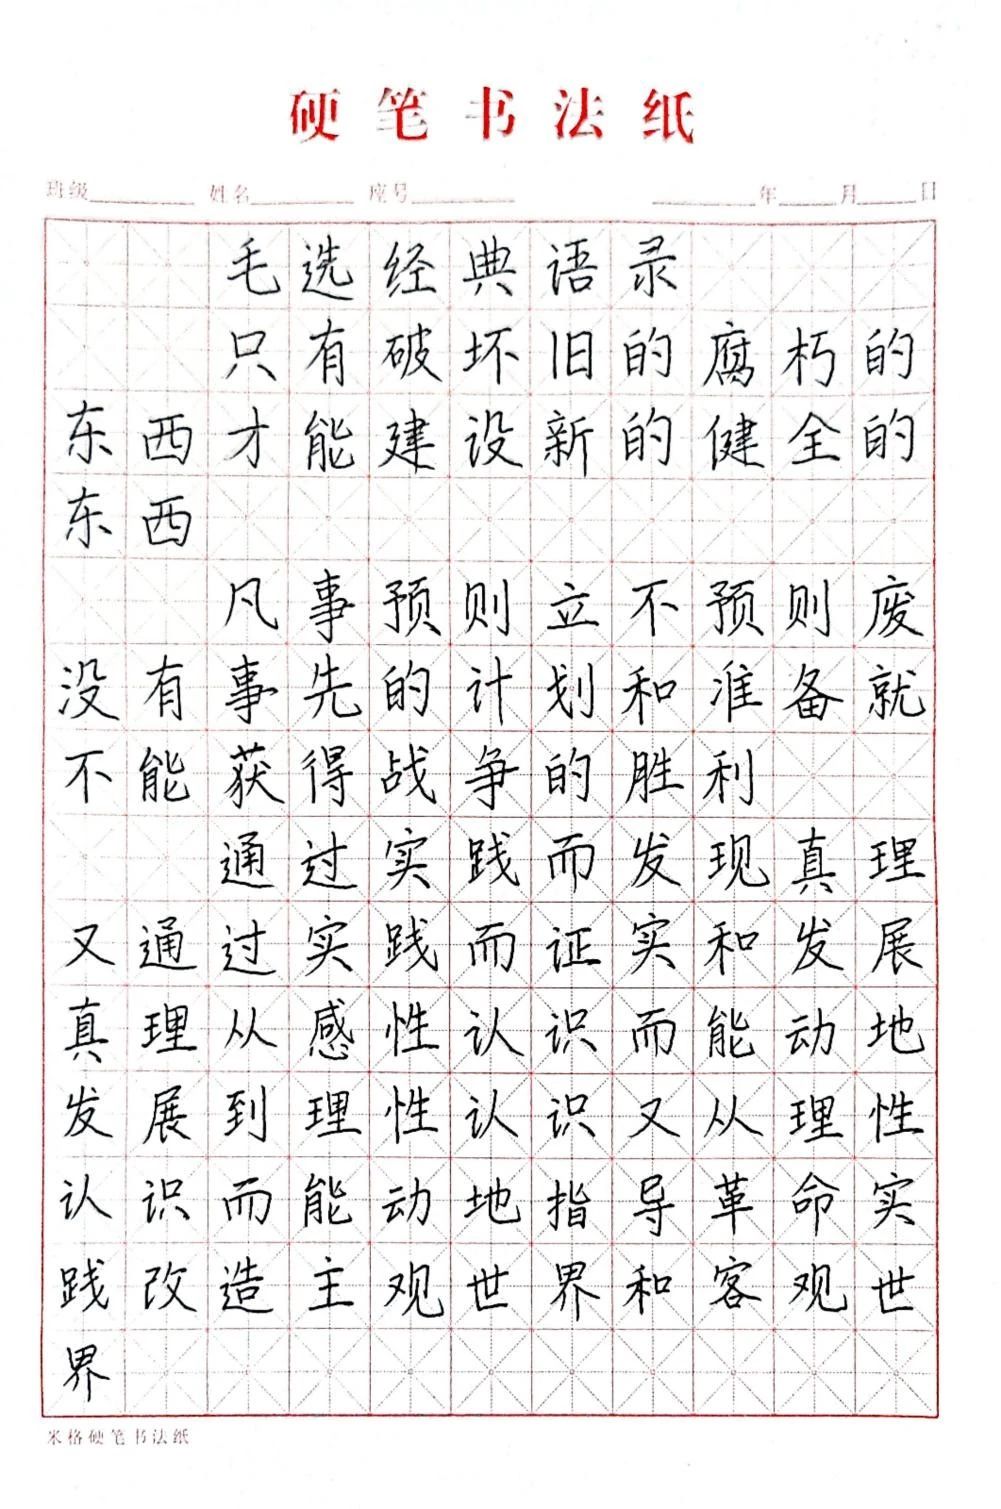 硬笔书法纸
班级 姓名 座号 年 月 日
毛选经典语录
只有破坏旧的腐朽的
东西才能建设新的健全的
东西
凡事预则立不预则废
没有事先的计划和准备就
不能获得战争的胜利
通过实践而发现真理
又通过实践而证实和发展
真理从感性认识而能动地
发展到理性认识又从理性
认识而能动地指导革命实
践改造主观世界和客观世
界
米格硬笔书法纸